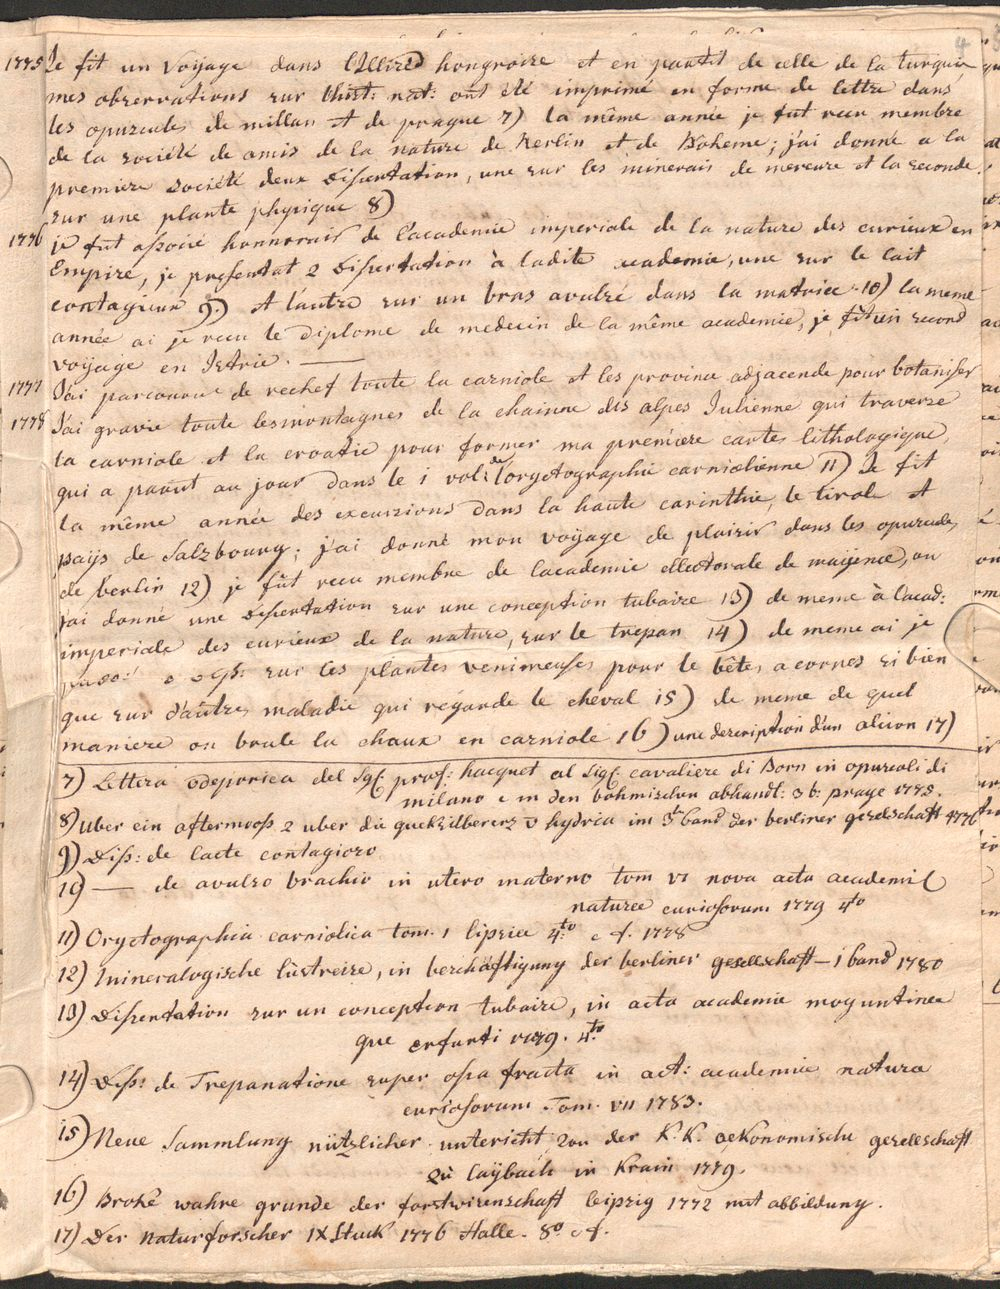 4
1775 Je fit un voyage dans l'Illirie hongroise et en partit de celle de la turquie
mes observations sur l'hist: nat: ont été imprimé en forme de lettre dans
les opuscules de millan et de prague 7) la même année je fut recu membre
de la société de amis de la nature de Berlin et de Boheme; j'ai donné a la
premiere société deux Dissertation, une sur les minerais de mercure et la seconde
sur une plante physique 8)
1776 je fut associé honnorais de l'academie imperiale de la nature des curieux en
Empire, je presentat 2 Dissertation à ladite academie, une sur le lait
contagieux 9) et l'autre sur un bras avulsé dans la matrice 10) la meme
année ai je recu le Diplome de medecin de la même academie, je fit un second
voyage en Istrie. —
1777 J'ai parcourue de rechef toute la carniole et les province adjacende pour botaniser
1778 J'ai gravie toute les montagnes de la chainne des alpes Julienne qui traverse
la carniole et la croatie pour former ma premiere cartes lithologique,
qui a parut au jour dans le 1 vol: de l'oryctographie carniolienne 11) Je fit
la même année des excursions dans la haute carinthie, le tirole et
païs de Salzbourg; j'ai donné mon voyage de plaisir dans les opuscules
de berlin 12) je fût recu membre de l'academie ellectorale de mayence, ou
j'ai donné une Dissertation sur une conception tubaire 13) de meme à l'acad:
imperiale des curieux de la nature, sur le trepan 14) de meme ai je
sur les plantes venimeuses pour le bêtes a cornes si bien
que sur d'aûtres maladie qui regarde le cheval 15) de meme de quel
maniere on brule la chaux en carniole 16) une description d'un alcion 17)
7) Lettera odeporica del Sigr. prof: hacquet al Sigr. cavaliere di Born in opuscoli di
milano e in den böhmischen abhandt: 3 b: prage 1775.
8) Uber ein aftermooss 2 uber die queksilbererz v hydria im 3ten band der berliner geselschaft 1776
9) Diss: de lacte contagioso
10) — de avulso brachio in utero materno tom VI nova acta academie
naturee curiosorum 1779 4to
11) Oryctographia carniolica tom. 1 lipsiee 4to. c f. 1778
12) Mineralogische lustreise, in beschäftigung der berliner gesellschaft — 1 band 1780
13) Dissertation sur un conception tubaire, in acta academie moguntinee
que erfurti 1779. 4to.
14) Diss: de Trepanatione super ossa fracta in act: academie natura
curiosorum Tom. VII 1783.
15) Neue Sammlung nützlicher untericht von der K. K. oekonomische geselschaft
zu laÿbach in Krain 1779.
16) Broke wahre grunde der forstwisenschaft leipzig 1772 mit abbildung.
17) Der Naturforscher IX Stuck 1776 Halle. 8o c f.